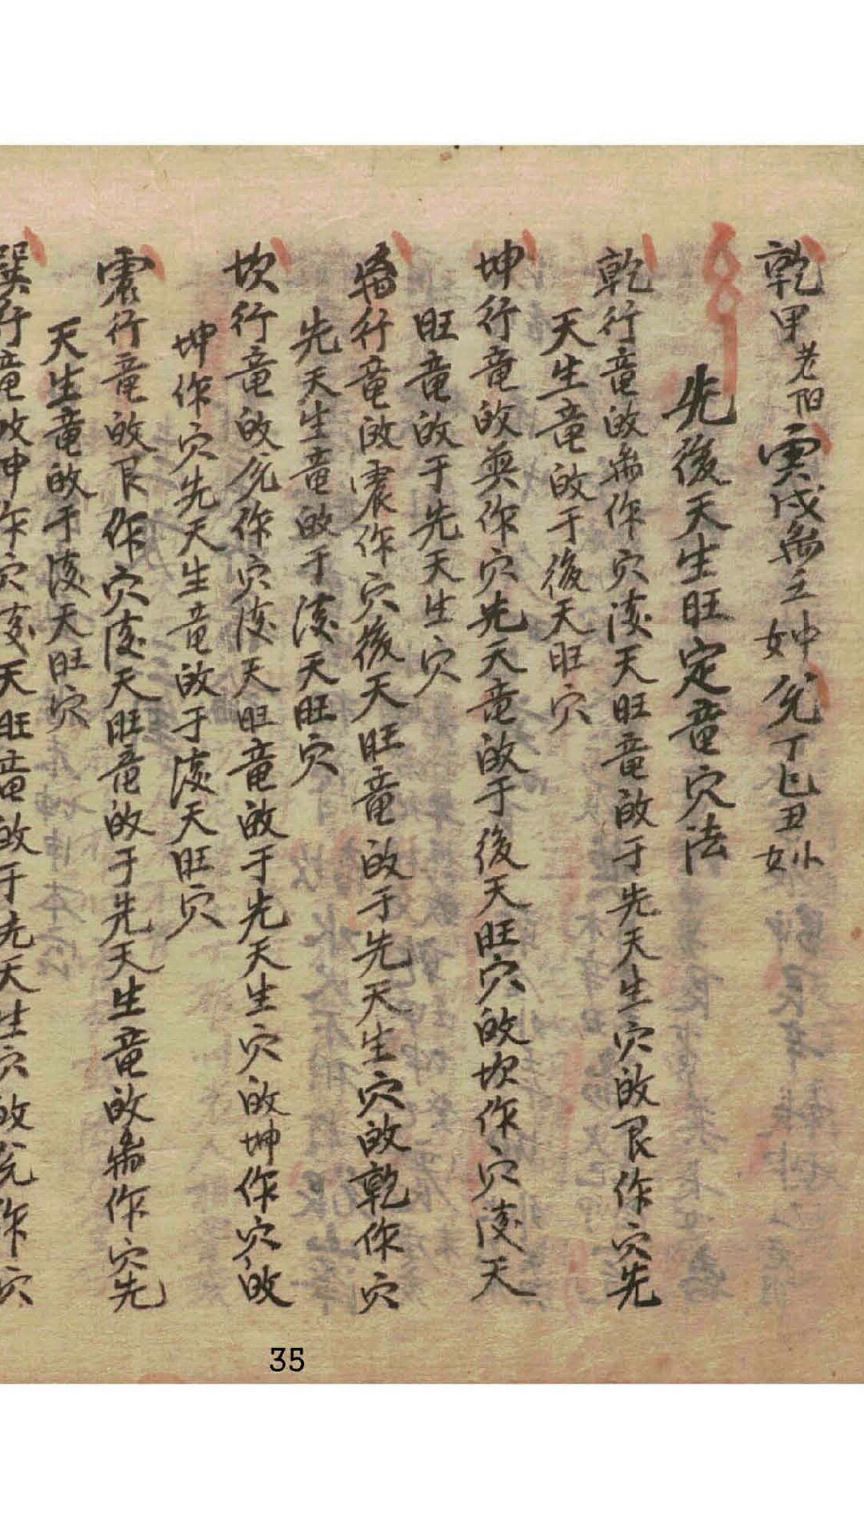 乾甲老阳 寅戌离壬 如中 兊丁巳丑 如小
先後天生旺定竜穴法
乾行竜的离作穴後天旺竜的于先天生穴的艮作穴先
天生竜的于後天旺穴
坤行竜的巽作穴先天竜的于後天旺穴的坎作穴後天
旺竜的于先天生穴
离行竜的震作穴後天旺竜的于先天生穴的乾作穴
先天生竜的于後天旺穴
坎行竜的兊作穴後天旺竜的于先天生穴的坤作穴的
坤作穴先天生竜的于後天旺穴
震行竜的艮作穴後天旺竜的于先天生竜的离作穴先
天生竜的于後天旺穴
巽行竜的坤作穴後天旺竜的于先天生穴的兊作穴
35